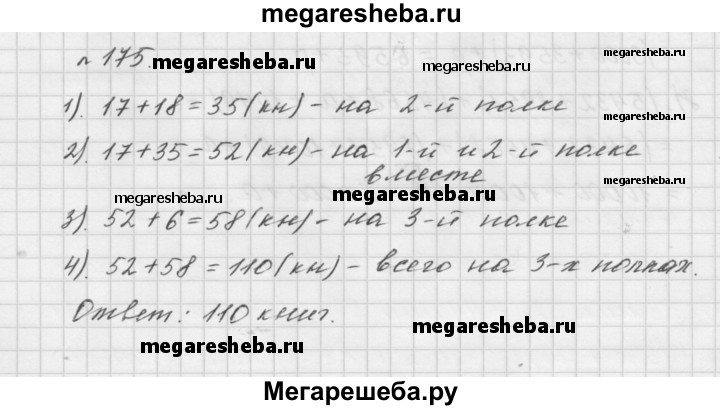 megaresheba.ru
№ 175.
megaresheba.ru
megaresheba.ru
megaresheba.ru
1). 17+18=35(кн) – на 2-й полке
2). 17+35=52(кн) – на 1-й и 2-й полке
вместе
megaresheba.ru
megaresheba.ru
megaresheba.ru
3). 52+6=58(кн) – на 3-й полке
4). 52+58=110(кн) – всего на 3-х полках.
Ответ: 110 книг.
megaresheba.ru
megaresheba.ru
Мегарешеба.ру